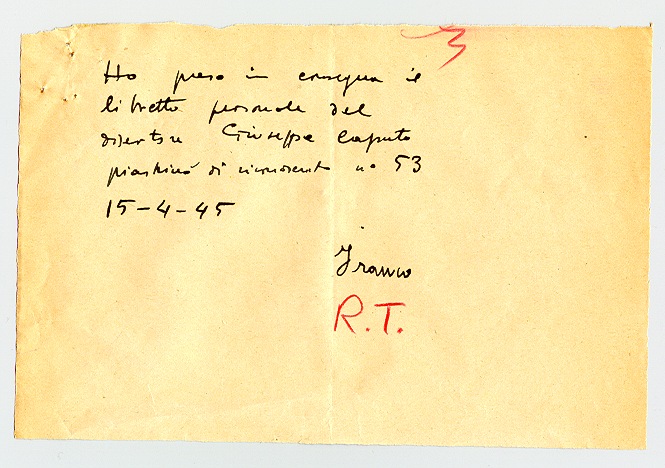 Ho preso in consegna il
libretto personale del
disertore Giuseppe Caputo
piastrina di riconoscimento no 53
15-4-45
Franco
R.T.